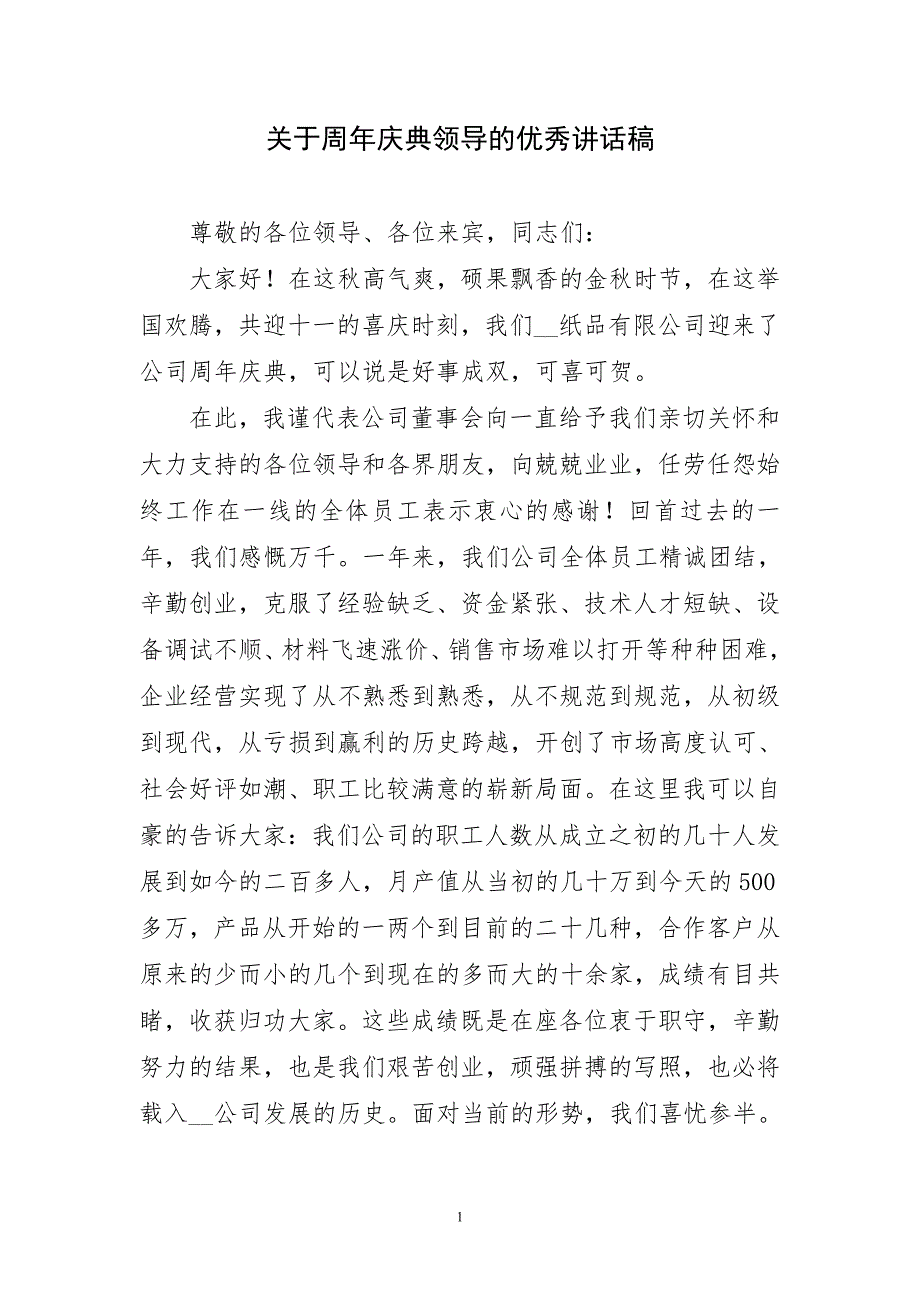 关于周年庆典领导的优秀讲话稿
尊敬的各位领导、各位来宾，同志们：
大家好！在这秋高气爽，硕果飘香的金秋时节，在这举
国欢腾，共迎十一的喜庆时刻，我们__纸品有限公司迎来了
公司周年庆典，可以说是好事成双，可喜可贺。
在此，我谨代表公司董事会向一直给予我们亲切关怀和
大力支持的各位领导和各界朋友，向兢兢业业，任劳任怨始
终工作在一线的全体员工表示衷心的感谢！回首过去的一
年，我们感慨万千。一年来，我们公司全体员工精诚团结，
辛勤创业，克服了经验缺乏、资金紧张、技术人才短缺、设
备调试不顺、材料飞速涨价、销售市场难以打开等种种困难，
企业经营实现了从不熟悉到熟悉，从不规范到规范，从初级
到现代，从亏损到赢利的历史跨越，开创了市场高度认可、
社会好评如潮、职工比较满意的崭新局面。在这里我可以自
豪的告诉大家：我们公司的职工人数从成立之初的几十人发
展到如今的二百多人，月产值从当初的几十万到今天的500
多万，产品从开始的一两个到目前的二十几种，合作客户从
原来的少而小的几个到现在的多而大的十余家，成绩有目共
睹，收获归功大家。这些成绩既是在座各位衷于职守，辛勤
努力的结果，也是我们艰苦创业，顽强拼搏的写照，也必将
载入__公司发展的历史。面对当前的形势，我们喜忧参半。
1